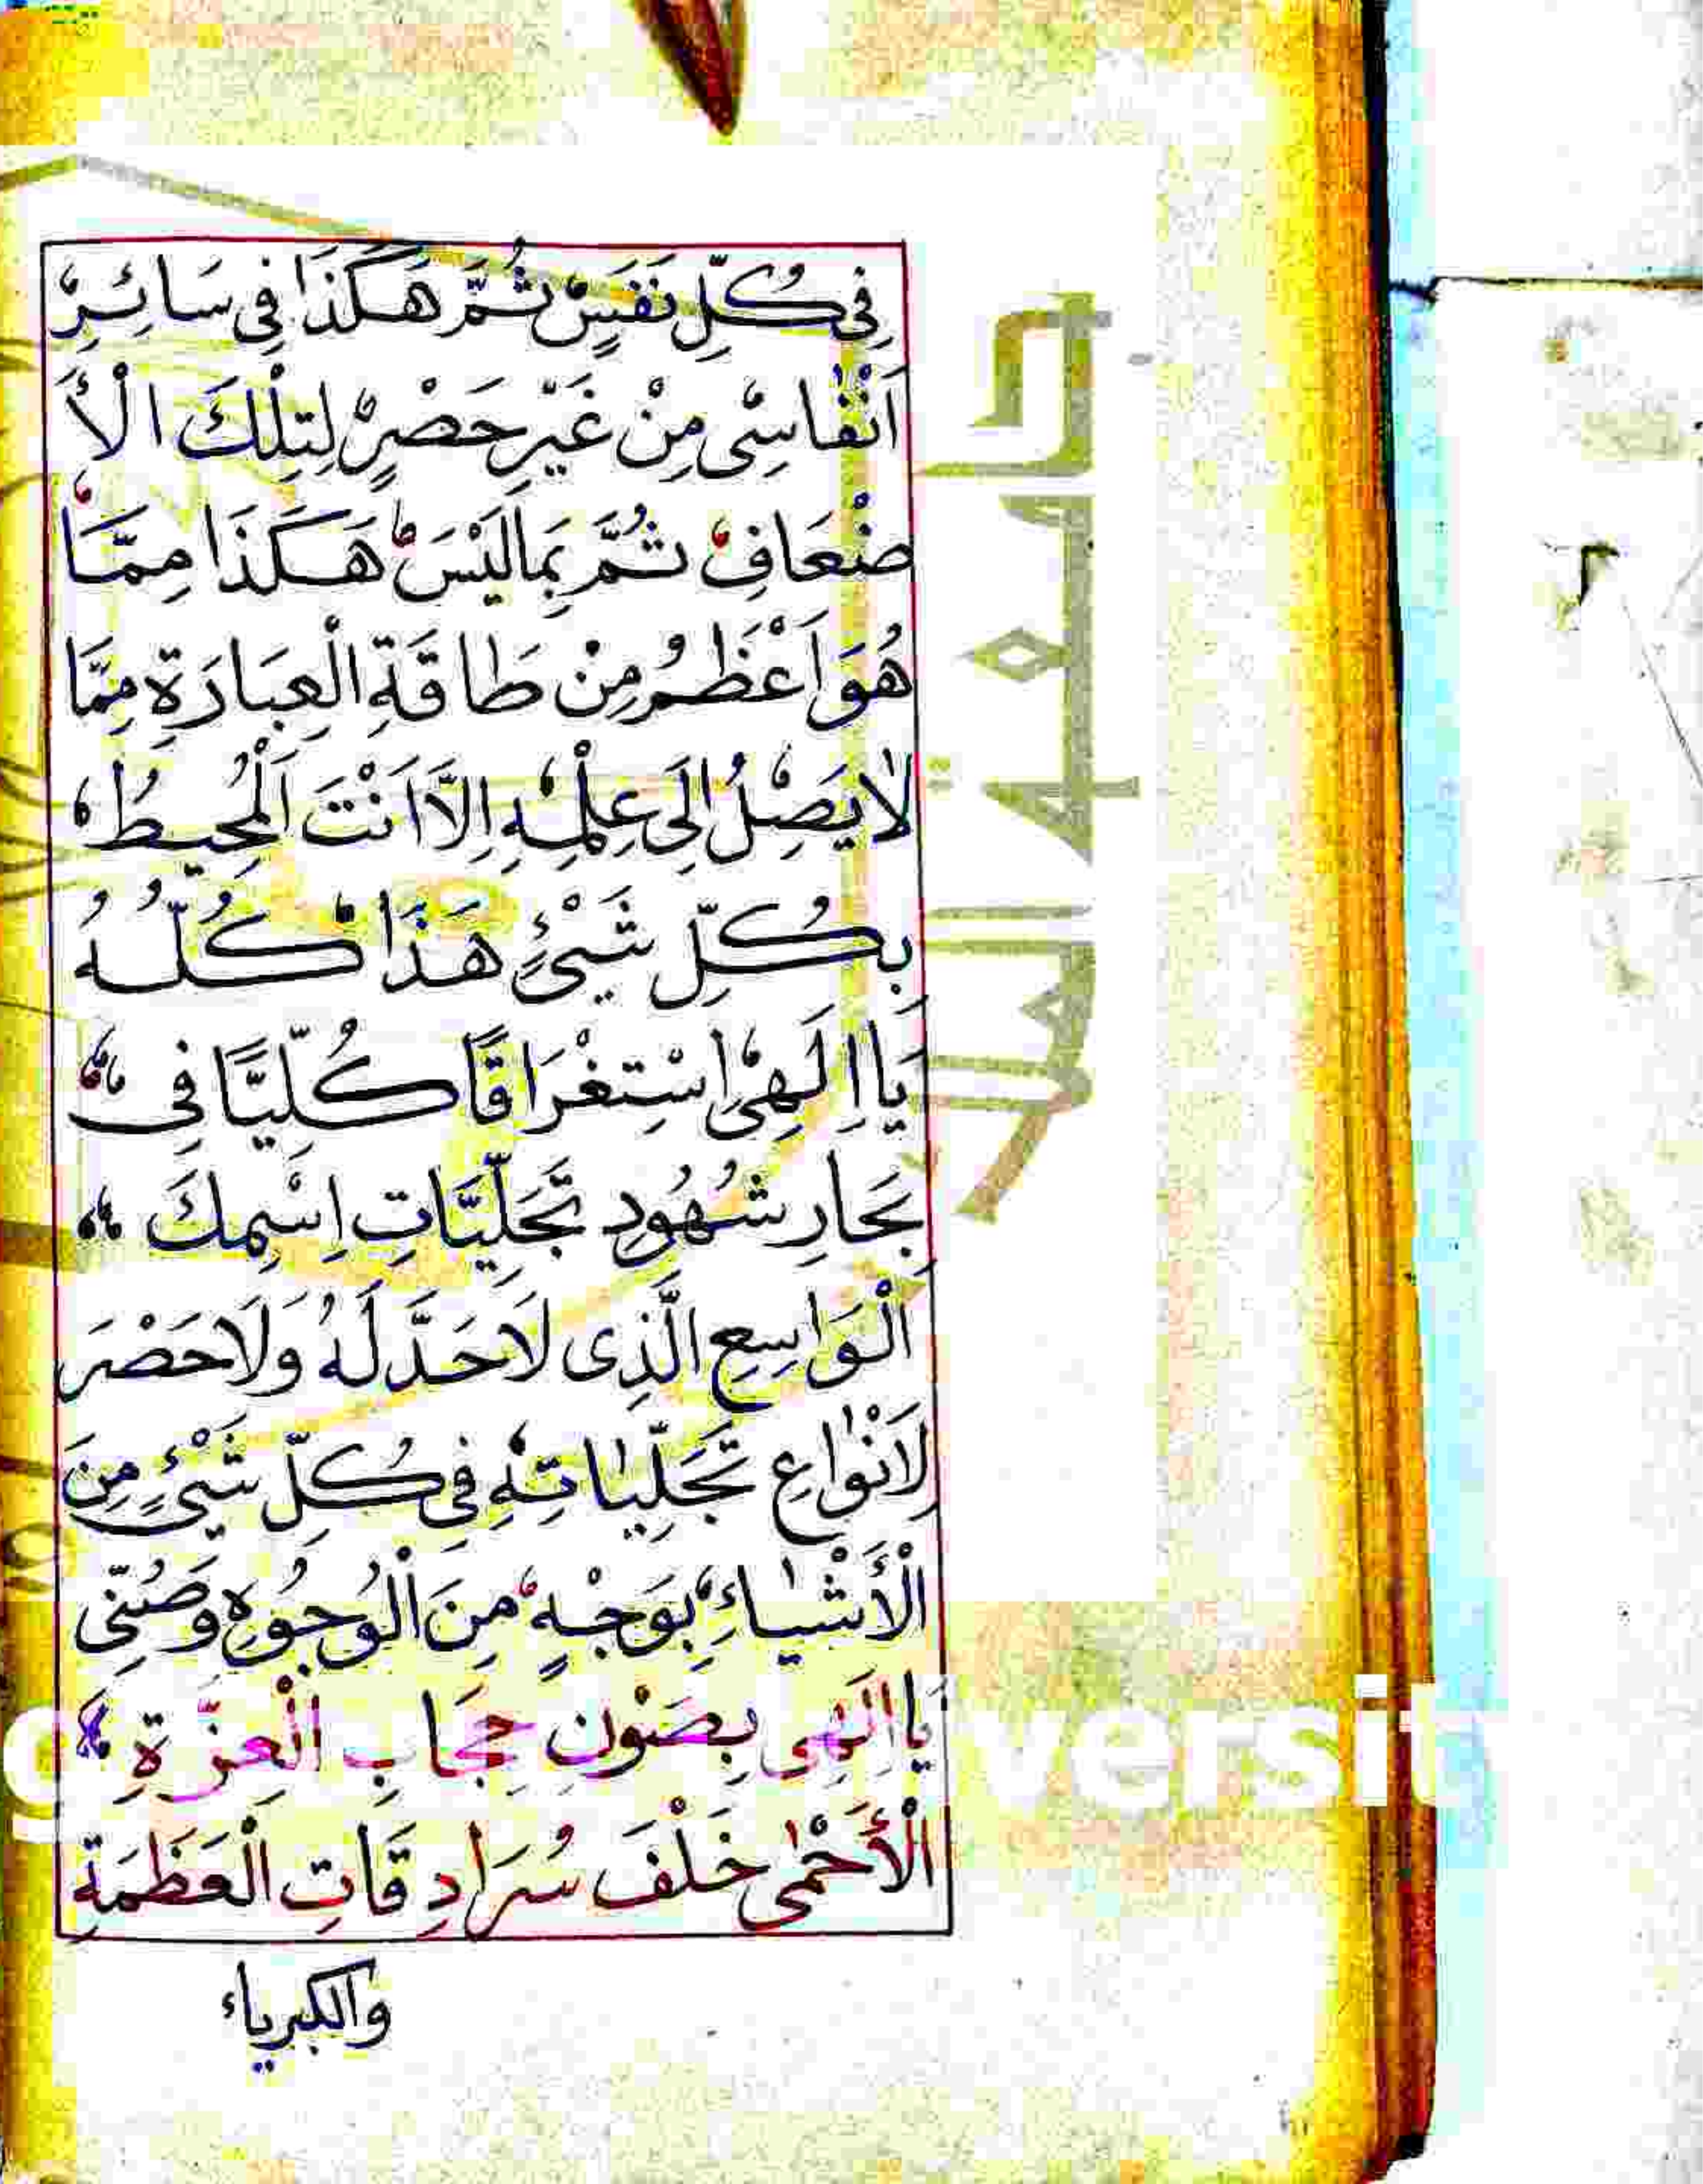 فِى كُلِّ نَفَسٍ ثُمَّ هَكَذَا فِى سَائِرِ
اَنْفَاسِى مِنْ غَيْرِ حَصْرٍ لِتِلْكَ الْأَ
ضْعَافِ ثُمَّ بِمَا لَيْسَ هَكَذَا مِمَّا
هُوَ اَعْظَمُ مِنْ طَاقَةِ الْعِبَارَةِ مِمَّا
لَا يَصِلُ اِلَى عِلْمِهِ اِلَّا اَنْتَ الْمُحِيطُ
بِكُلِّ شَيْئٍ هَذَا كُلُّهُ
يَا اِلَهِى اِسْتِغْرَاقًا كُلِّيًّا فِى
بِحَارِ شُهُودِ تَجَلِّيَّاتِ اِسْمِكَ
الْوَاسِعِ الَّذِى لَا حَدَّ لَهُ وَلَا حَصْرَ
لِاَنْوَاعِ تَجَلِّيَاتِهِ فِى كُلِّ شَيْئٍ مِنَ
الْأَشْيَاءِ بِوَجْهٍ مِنَ الْوُجُوهِ وَصُنِّى
يَا اِلَهِى بِصَوْنِ حِجَابِ الْعِزَّةِ
الْأَحْمَى خَلْفَ سُرَادِقَاتِ الْعَظَمَةِ
والكبرياء
جامعة الملك
versit